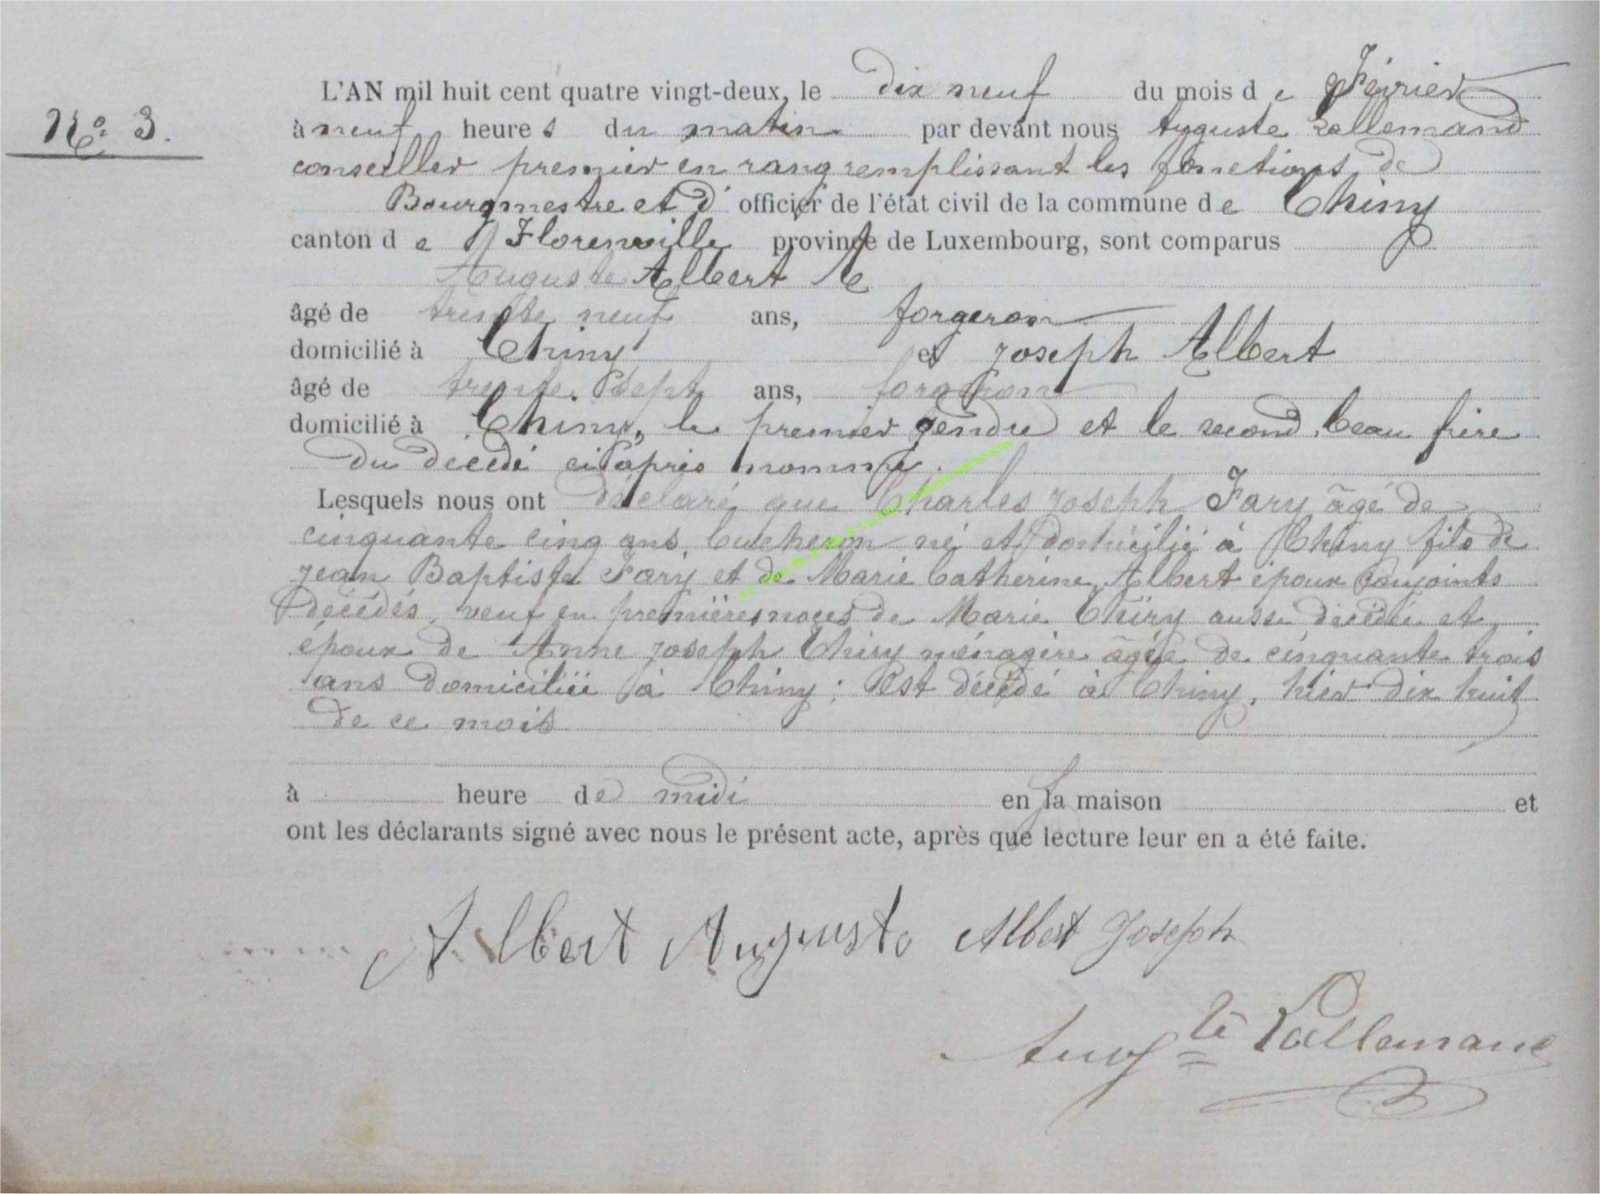 L'AN mil huit cent quatre vingt-deux, le dix neuf du mois de Février
No. 3. à neuf heures du matin par devant nous Auguste Lallemand
conseiller premier en rang remplissant les fonctions de
Bourgmestre et d' officier de l'état civil de la commune de Chiny
canton de Florenville province de Luxembourg, sont comparus
Auguste Albert
âgé de trente neuf ans, forgeron
domicilié à Chiny et Joseph Albert
âgé de trente sept ans, forgeron
domicilié à Chiny, le premier gendre et le second beau frère
du décédé ci après nommé.
Lesquels nous ont déclaré que Charles Joseph Fary âgé de
cinquante cinq ans, bucheron né et domicilié à Chiny fils de
Jean Baptiste Fary et de Marie Catherine Albert époux conjoints
décédés, veuf en premières noces de Marie Thiry aussi décédée et
époux de Anne Joseph Thiry ménagère âgée de cinquante trois
ans domiciliée à Chiny; est décédé à Chiny, hier dix huit
de ce mois
à heure de midi en la maison et
ont les déclarants signé avec nous le présent acte, après que lecture leur en a été faite.
Albert Auguste Albert Joseph
Aug te Lallemand